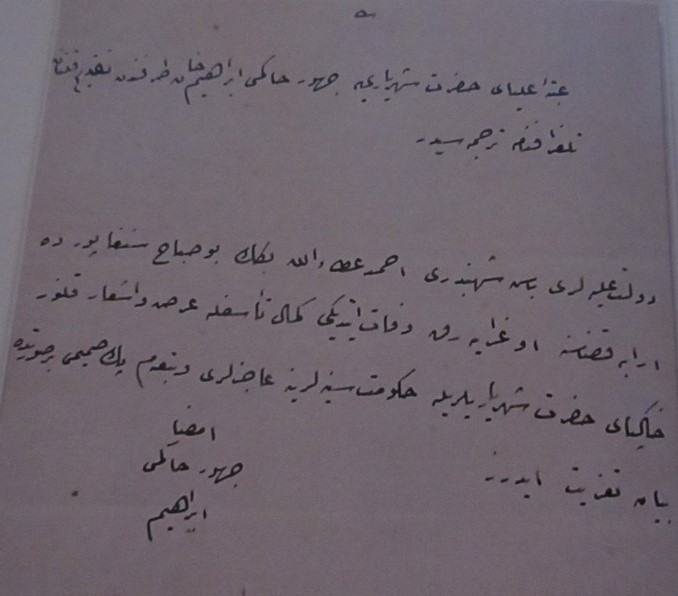 عتبهٔ علیای حضرت شهریاری‌یه جهور حاکمی ابراهیم خان طرفندن تقدیم قلنان
تلغرافنامه ترجمه‌سیدر
دولت علیه‌لری باش شهبندری احمد عطاءالله بك بو صباح سنغاپورده
ارابه قضاسنه اوغرایه‌رق وفات ایتدیکی کمال تأسفله عرض و اشعار قلنور
خاکپای حضرت شهریاریلریله حکومت سنیه‌لرینه عاجزلری و تبعه‌م پك صمیمی بر صورتده
بیان تعزیت ایدرز
امضا
جهور حاکمی
ابراهیم